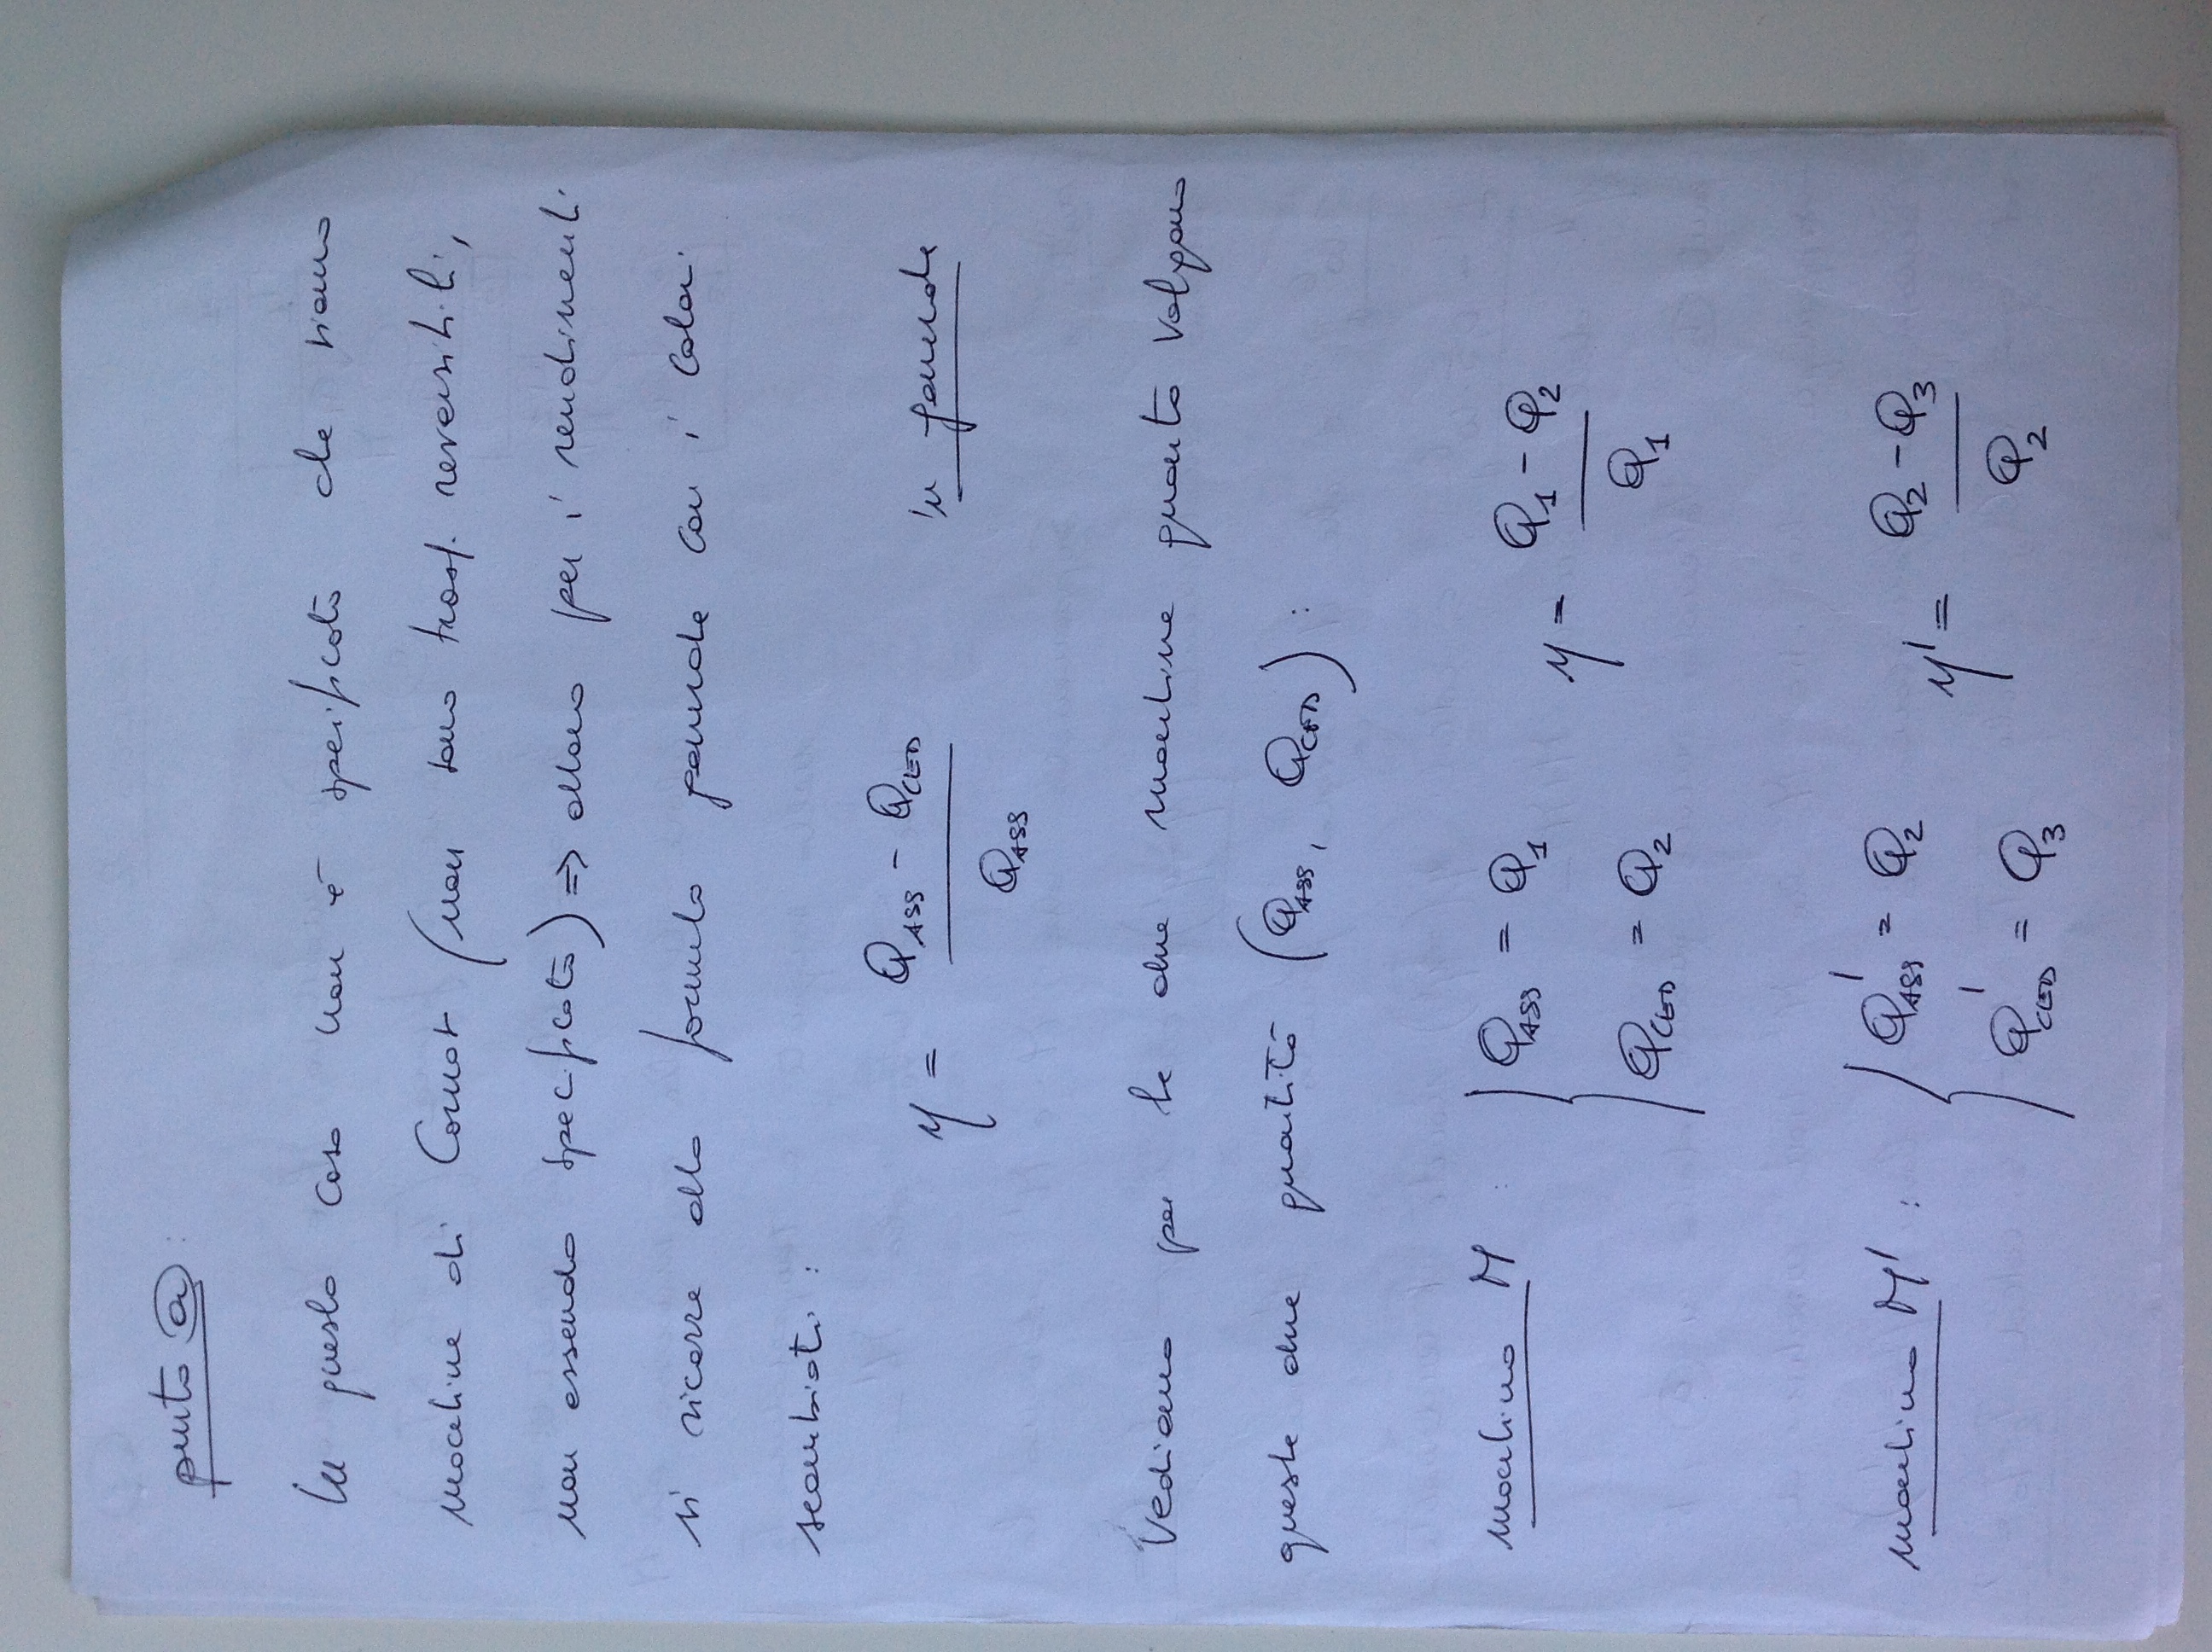 punto (a) :
In questo caso non è specificato che siano
macchine di Carnot (non sono trasf. reversibili,
non essendo specificato) ⇒ allora per i rendimenti
si ricorre alla formula generale con i calori
scambiati :
η = (Q_ASS - Q_CED) / Q_ASS in generale
Vediamo per le due macchine quanto valgano
queste due quantità (Q_ASS, Q_CED) :
macchina M : { Q_ASS = Q_1 η = (Q_1 - Q_2) / Q_1
Q_CED = Q_2
macchina M' : { Q'_ASS = Q_2 η' = (Q_2 - Q_3) / Q_2
Q'_CED = Q_3